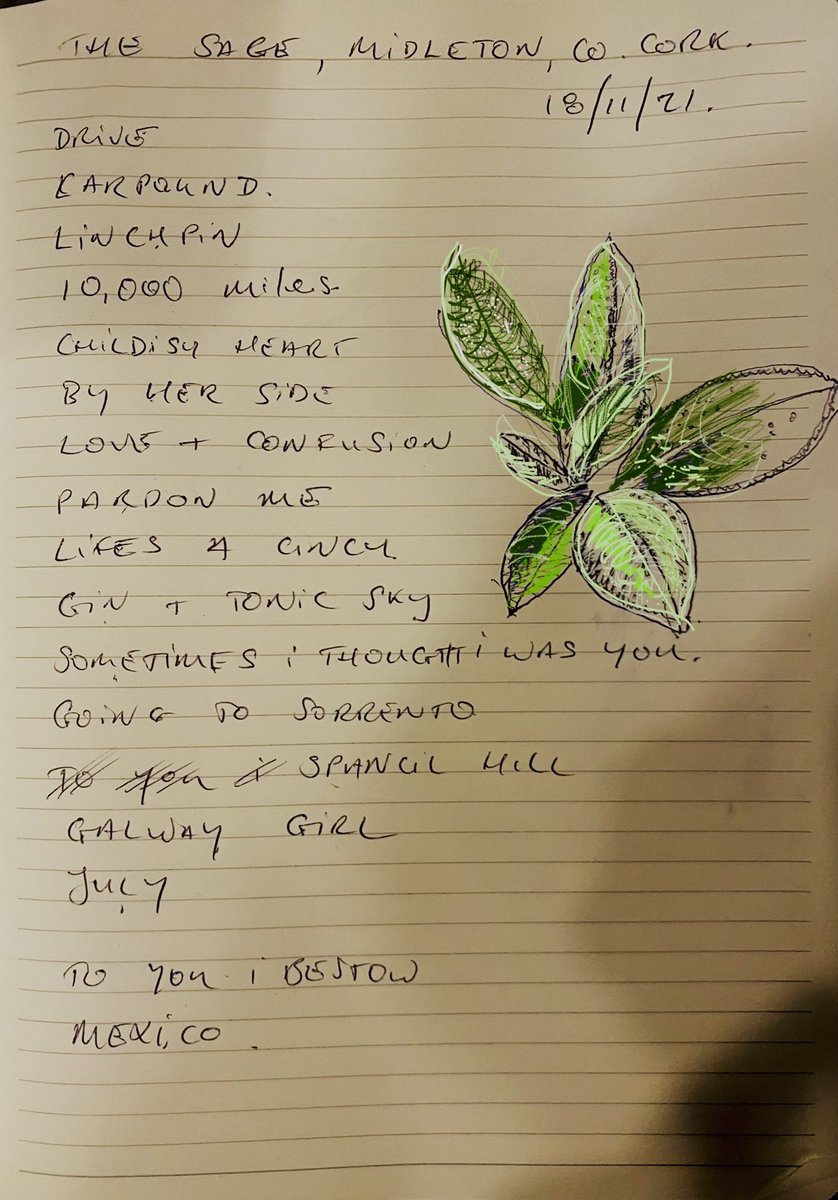 THE SAGE, MIDLETON, CO. CORK.
18/11/21.
DRIVE
EARPOUND.
LINCHPIN
10,000 miles
CHILDISH HEART
BY HER SIDE
LOVE + CONFUSION
PARDON ME
LIFES A CINCH
GIN + TONIC SKY
SOMETIMES i THOUGHT i WAS YOU.
GOING TO SORRENTO
TO you i SPANCIL HILL
GALWAY GIRL
JULY
TO you i BESTOW
MEXICO.